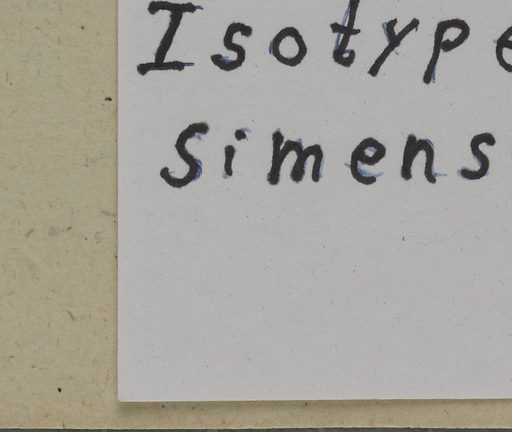 Isotype
Simens